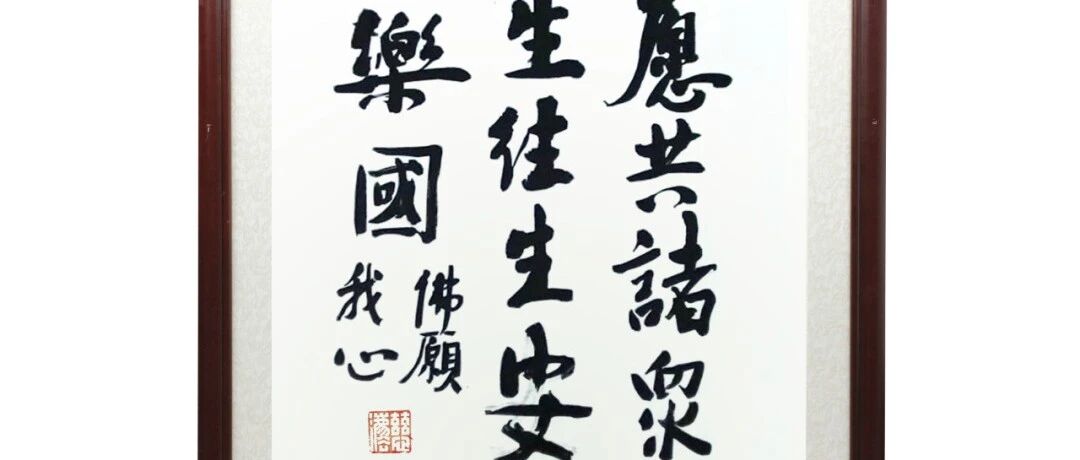 愿共諸衆
生往生安
樂國
佛願
我心